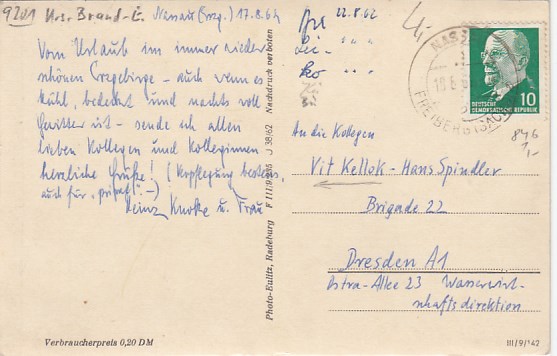 9201
Nassau (Erzg.) 17.8.62
Vom Urlaub im immer wieder
schönen Erzgebirge - auch wenn es
kühl, bedeckt und nachts voll
Gewitter ist - sende ich allen
lieben Kollegen und Kolleginnen
herzliche Grüße! (Verpflegung bestens,
auch für „privat"! -)
Heinz Knoke u. Frau
Verbraucherpreis 0,20 DM
Photo-Eulitz, Radeburg F III/9/1 J 38/62 Nachdruck verboten
22.8.62
NASSAU
FREIBERG (SACHS)
10
DEUTSCHE
DEMOKRATISCHE REPUBLIK
846
1,-
An die Kollegen
Vit Kellok - Hans Spindler
Brigade 22
Dresden A1
Ostra-Allee 23 Wasserwirt-
schaftsdirektion
III/9/142